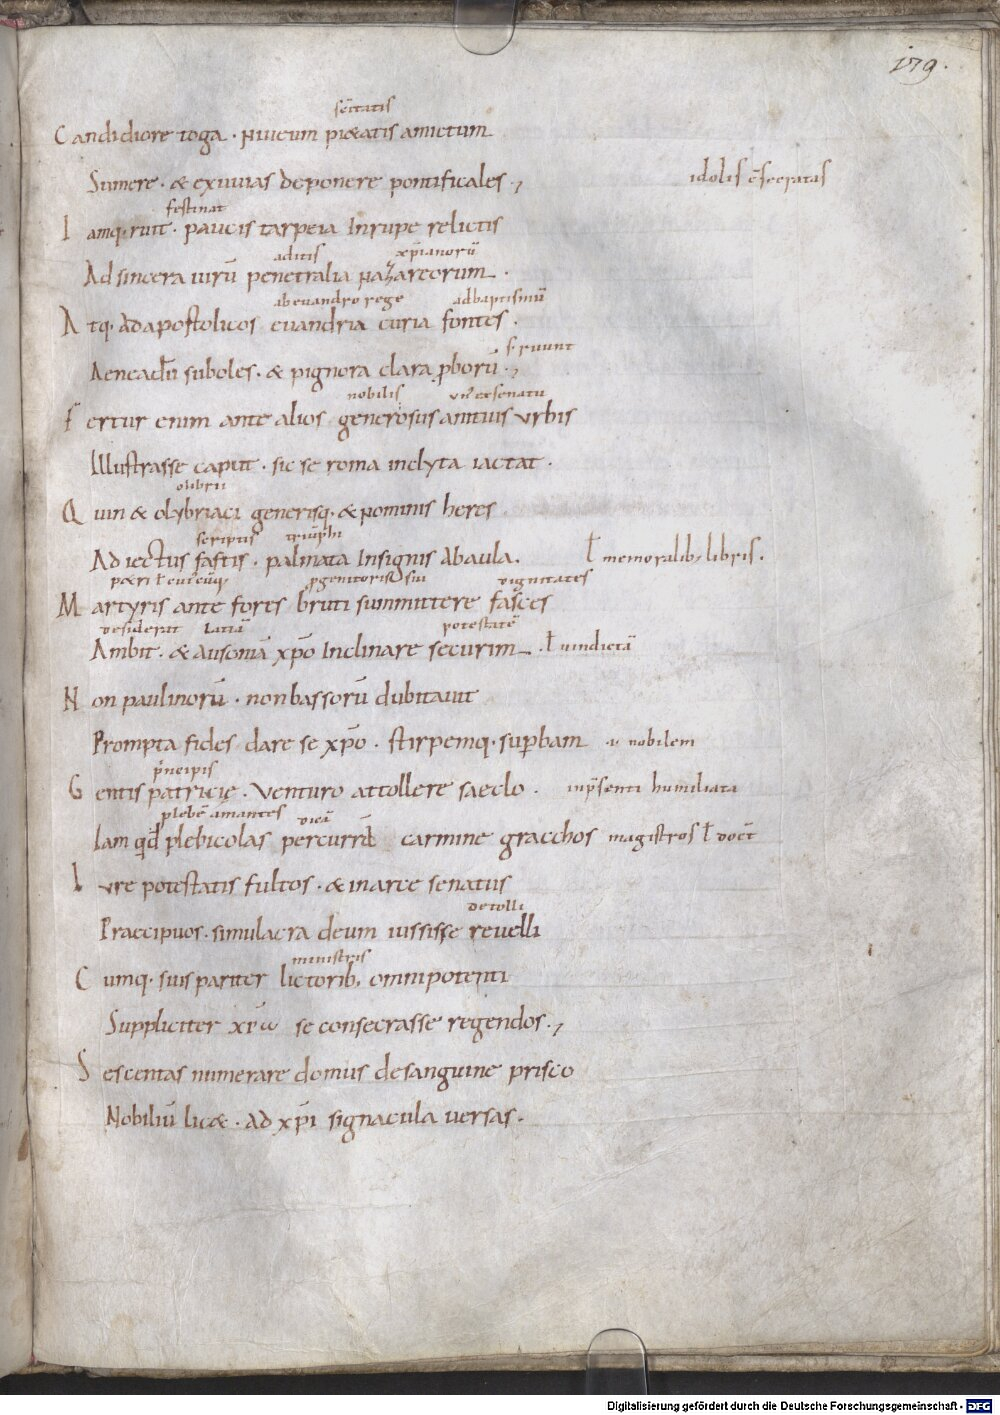 179.
sc̄itatis
Candidiore toga · niueum pi&atis amictum
Sumere · & exuuias deponere pontificales ·,
idolis cōsecratas
festinat
Iamq· ruit · paucis tarpeia Inrupe relictis
aditis xp̄ianorū
Ad sincera uirū penetralia nazareorum ·
ab euandro rege ad baptismū
Atq· Ad apostolicos euandria curia fontes ·
s· ruunt
Aeneadū suboles · & pignora clara ꝓborū ·,
nobilis ex senatu
Fertur enim ante alios generosus anitius vrbis
Illustrasse caput · sic se roma inclyta iactat ·
olibrii
Quin & olybriaci generisq· & nominis heres
scriptis triūphi
Adiectus fastis · palmata Insignis Abaula . ł memoralib; libris .
ꝓgenitoris sui dignitates
Martyris ante fores bruti summittere fasces
desiderat Latiā potestatē
Ambit · & Ausoniā xp̄o Inclinare securim · ł uindictā
Non paulinorū · non bassorū dubitauit
Prompta fides dare se xp̄o · stirpemq· sup̄bam ·i· nobilem
p̄ncipis
Gentis patricię · Venturo attollere saeclo · inp̄senti humiliata
plebē amantes dicā
Iam qd̄ plebicolas percurrā carmine gracchos magistros ł doct̄
Iure potestatis fultos · & in arce senatus
detolli
Praecipuos · simulacra deum iussisse reuelli
ministris
Cumq· suis pariter lictorib; omnipotenti
Suppliciter xp̄ω se consecrasse regendos ·,
Sescentas numerare domus desanguine prisco
Nobiliū lic& · Ad xp̄i signacula uersas ·
Digitalisierung gefördert durch die Deutsche Forschungsgemeinschaft - DFG